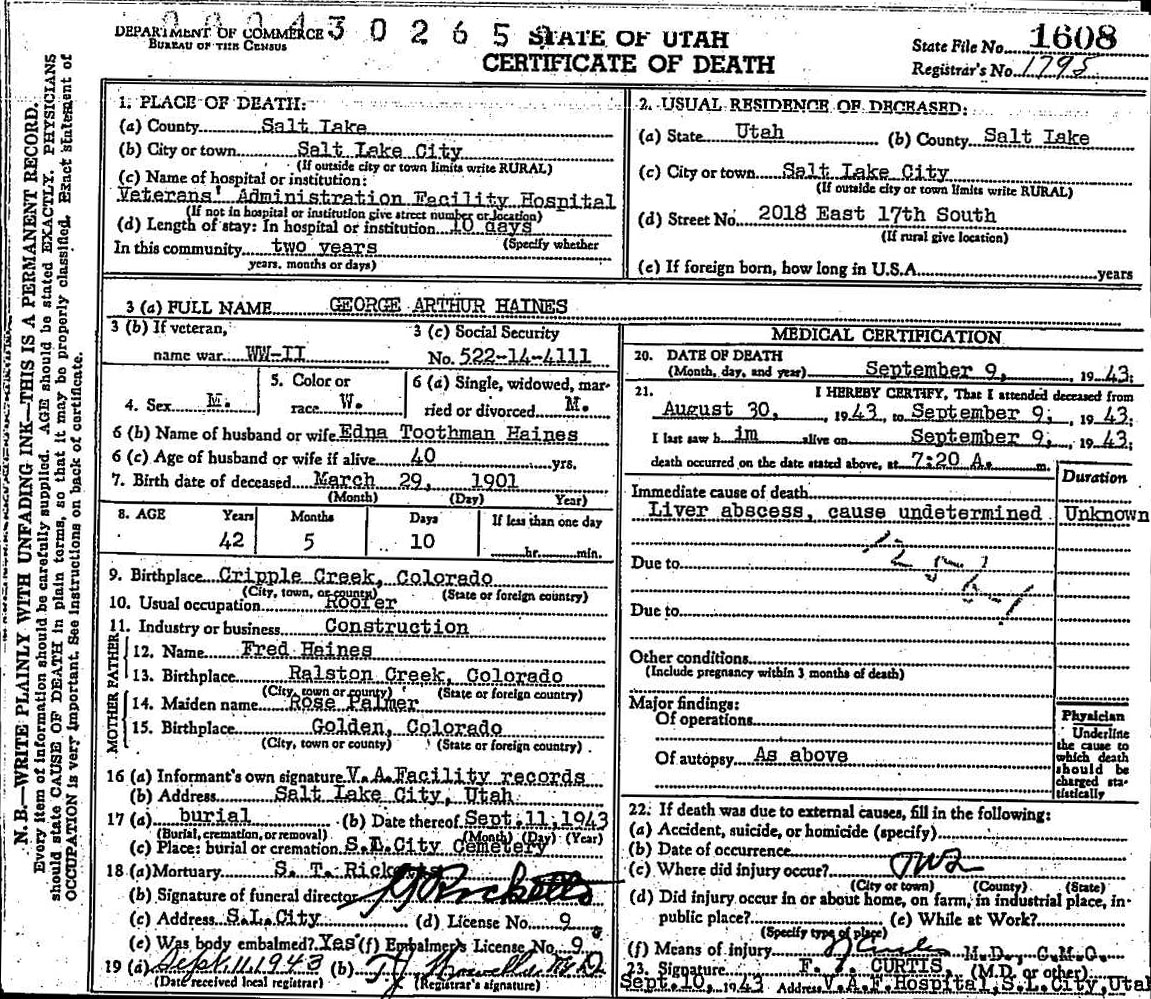 DEPARTMENT OF COMMERCE
BUREAU OF THE CENSUS
3 0 2 6 5
STATE OF UTAH
CERTIFICATE OF DEATH
State File No. 1608
Registrar's No. 1795
N. B.—WRITE PLAINLY WITH UNFADING INK—THIS IS A PERMANENT RECORD.
Every item of information should be carefully supplied. AGE should be stated EXACTLY. PHYSICIANS
should state CAUSE OF DEATH in plain terms, so that it may be properly classified. Exact statement of
OCCUPATION is very important. See instructions on back of certificate.
1. PLACE OF DEATH:
(a) County Salt Lake
(b) City or town Salt Lake City
(If outside city or town limits write RURAL)
(c) Name of hospital or institution:
Veterans' Administration Facility Hospital
(If not in hospital or institution give street number or location)
(d) Length of stay: In hospital or institution 10 days
(Specify whether
In this community two years
years, months or days)
2. USUAL RESIDENCE OF DECEASED:
(a) State Utah (b) County Salt Lake
(c) City or town Salt Lake City
(If outside city or town limits write RURAL)
(d) Street No. 2018 East 17th South
(If rural give location)
(e) If foreign born, how long in U.S.A. years
3 (a) FULL NAME GEORGE ARTHUR HAINES
3 (b) If veteran,
name war WW-II
3 (c) Social Security
No. 522-14-4111
4. Sex M.
5. Color or
race W.
6 (a) Single, widowed, mar-
ried or divorced M.
6 (b) Name of husband or wife Edna Toothman Haines
6 (c) Age of husband or wife if alive 40 yrs.
7. Birth date of deceased March 29, 1901
(Month) (Day) Year)
8. AGE Years Months Days If less than one day
42 5 10 hr. min.
9. Birthplace Cripple Creek, Colorado
(City, town, or county) (State or foreign country)
10. Usual occupation Roofer
11. Industry or business Construction
FATHER
12. Name Fred Haines
13. Birthplace Ralston Creek, Colorado
(City, town or county) (State or foreign country)
MOTHER
14. Maiden name Rose Palmer
15. Birthplace Golden, Colorado
(City, town or county) (State or foreign country)
16 (a) Informant's own signature V.A.Facility records
(b) Address Salt Lake City, Utah
17 (a) burial (b) Date thereof Sept.11,1943
(Burial, cremation, or removal) (Month) (Day) (Year)
(c) Place: burial or cremation S.L.City Cemetery
18 (a) Mortuary S. T. Ricketts
(b) Signature of funeral director Ricketts
(c) Address S.L.City (d) License No. 9
(e) Was body embalmed? Yas (f) Embalmer's License No. 9
19 (a) Sept. 11, 1943 (b)
(Date received local registrar) (Registrar's signature)
MEDICAL CERTIFICATION
20. DATE OF DEATH
(Month, day, and year) September 9, 1943:
21. I HEREBY CERTIFY, That I attended deceased from
August 30, 1943, to September 9; 1943:
I last saw him alive on September 9; 1943:
death occurred on the date stated above, at 7:20 A. m.
Duration
Immediate cause of death
Liver abscess, cause undetermined Unknown
Due to
Due to
Other conditions
(Include pregnancy within 3 months of death)
Major findings:
Of operations
Of autopsy As above
Physician
Underline
the cause to
which death
should be
charged sta-
tistically
22. If death was due to external causes, fill in the following:
(a) Accident, suicide, or homicide (specify)
(b) Date of occurrence
(c) Where did injury occur?
(City or town) (County) (State)
(d) Did injury occur in or about home, on farm, in industrial place, in-
public place? (e) While at Work?
(Specify type of place)
(f) Means of injury M.D., C.M.O.
23. Signature F. J. CURTIS, (M.D. or other)
Sept.10, 1943 Address V.A.F.Hospital,S.L.City,Utah